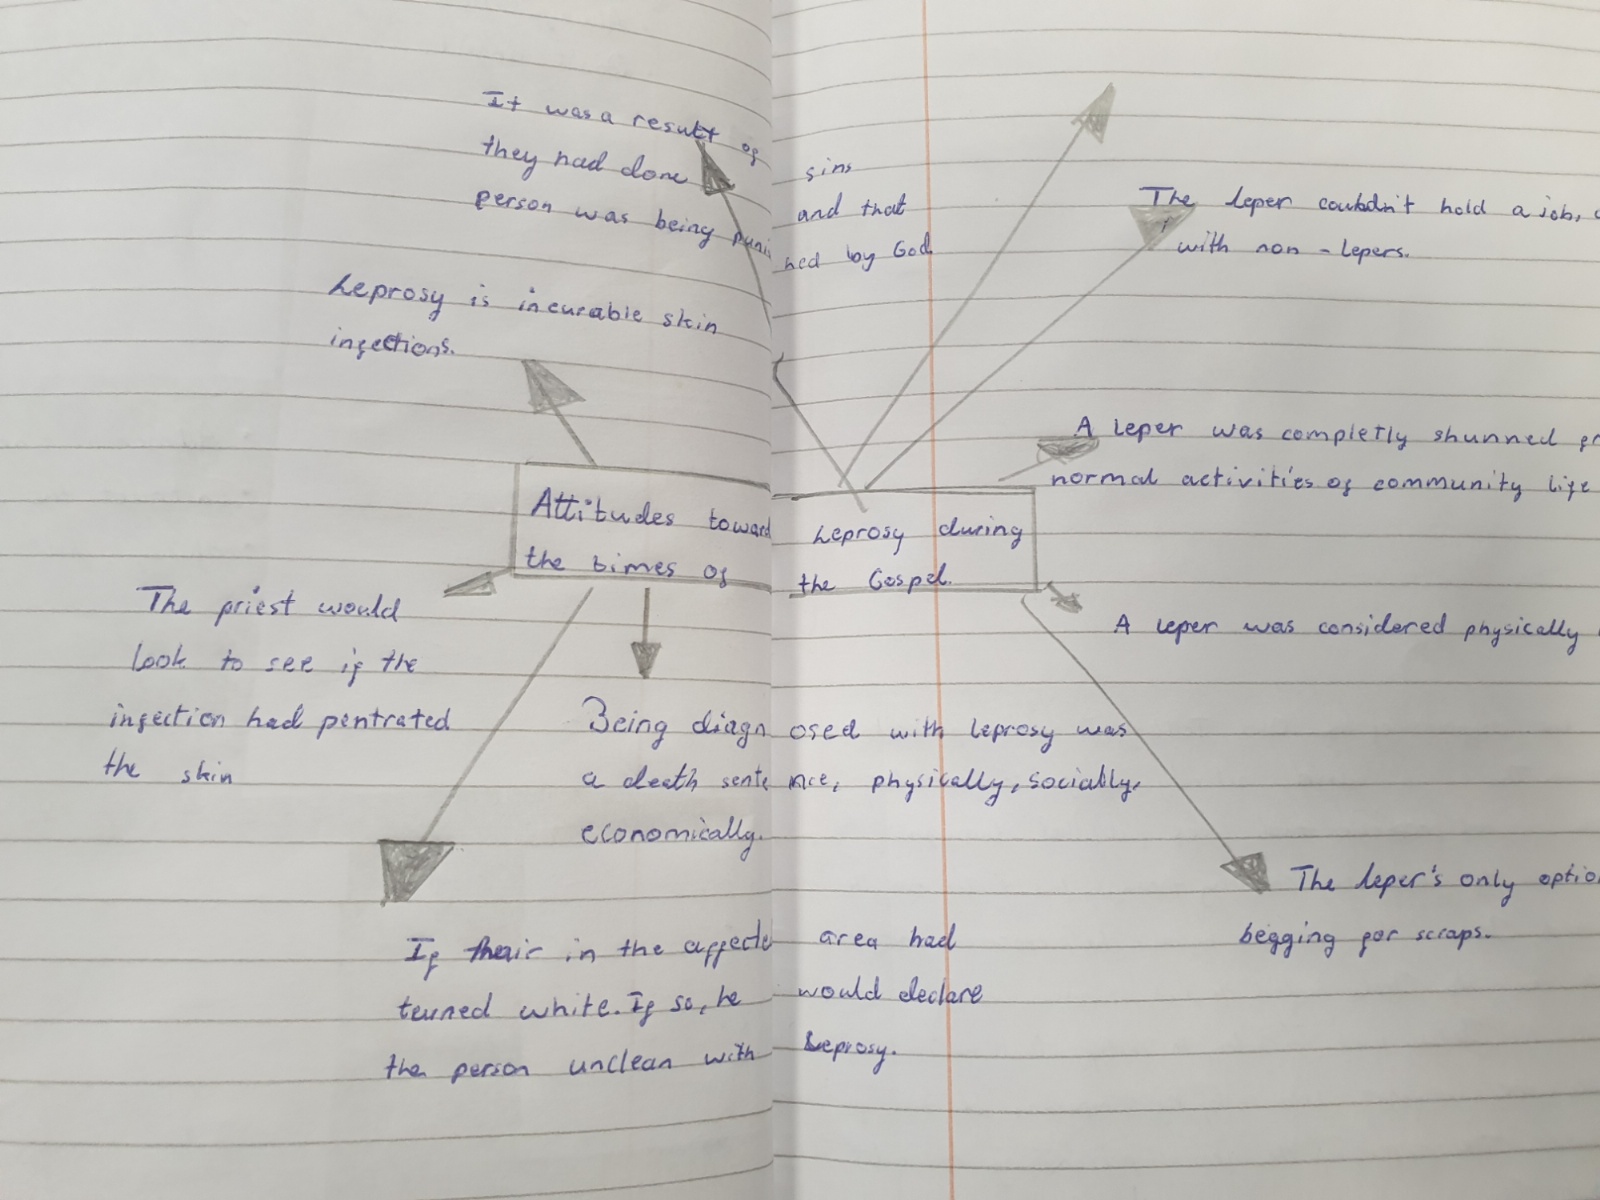 It was a result of sins
they had done and that
person was being punished by God
Leprosy is incurable skin
infections.
The leper couldn't hold a job,
with non-lepers.
A leper was completly shunned
normal activities of community life
Attitudes toward Leprosy during
the times of the Gospel.
The priest would
look to see if the
infection had pentrated
the skin
A leper was considered physically
Being diagnosed with leprosy was
a death sentence, physically, socially,
economically.
The leper's only
begging for scraps.
If hair in the affected area had
turned white. If so, he would declare
the person unclean with Leprosy.